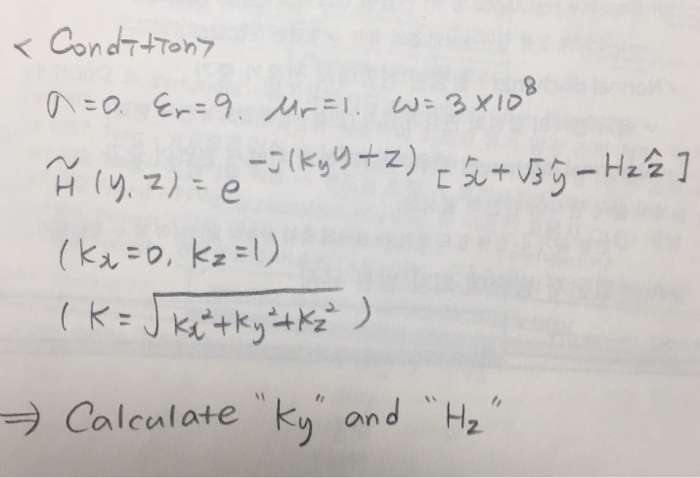 < Condition>
σ=0. εr=9 μr=1. ω=3×10⁸
H̃(y, z) = e^-j(kyy+z) [x̂+√3ŷ-Hzẑ]
(kx=0, kz=1)
(K=√kx²+ky²+kz²)
⇒ Calculate "ky" and "Hz"